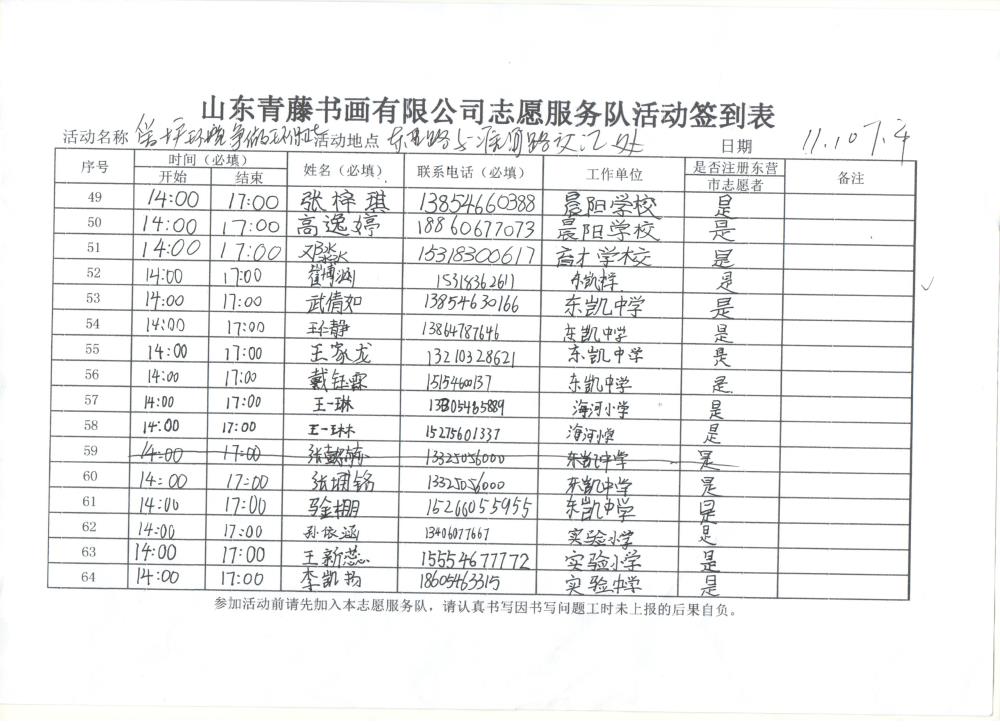 山东青藤书画有限公司志愿服务队活动签到表
活动名称 保护环境争做环保 活动地点 东 路与淮河路交汇处 日期 11.10
序号 时间（必填） 姓名（必填） 联系电话（必填） 工作单位 是否注册东营市志愿者 备注
开始 结束
49 14:00 17:00 张梓琪 13854660388 晨阳学校 是
50 14:00 17:00 高逸婷 18860677073 晨阳学校 是
51 14:00 17:00 邓淼淼 15318300617 育才学校 是
52 14:00 17:00 博涵 15318362611 东凯 是
53 14:00 17:00 武倩如 13854630166 东凯中学 是
54 14:00 17:00 王仁静 13864787646 东凯中学 是
55 14:00 17:00 王家龙 13210328621 东凯中学 是
56 14:00 17:00 戴钰霖 15154600137 东凯中学 是
57 14:00 17:00 王一琳 13305465889 海河小学 是
58 14:00 17:00 王一琳 15275601337 海河小学 是
59 14:00 17:00 张 13325056000 东凯中学 是
60 14:00 17:00 张 铭 13325056000 东凯中学 是
61 14:00 17:00 15266055955 东凯中学 是
62 14:00 17:00 孙依涵 13406077667 实验小学 是
63 14:00 17:00 王新蕊 15554677772 实验小学 是
64 14:00 17:00 李凯扬 18605463315 实验中学 是
参加活动前请先加入本志愿服务队，请认真书写因书写问题工时未上报的后果自负。